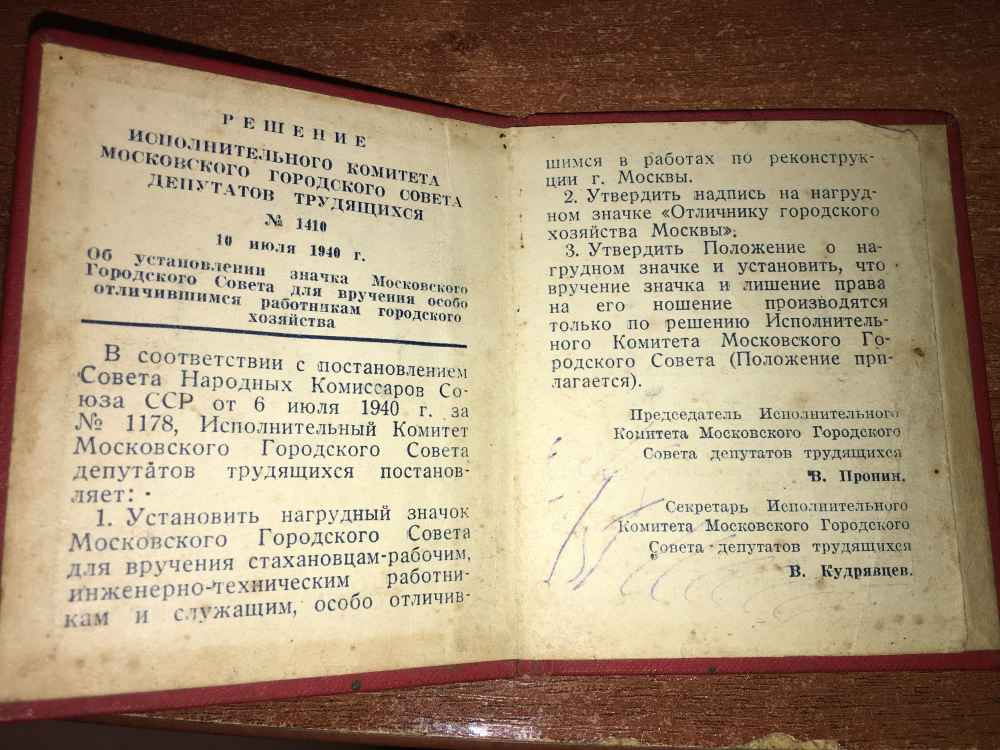 РЕШЕНИЕ
ИСПОЛНИТЕЛЬНОГО КОМИТЕТА
МОСКОВСКОГО ГОРОДСКОГО СОВЕТА
ДЕПУТАТОВ ТРУДЯЩИХСЯ
№ 1410
10 июля 1940 г.
Об установлении значка Московского
Городского Совета для вручения особо
отличившимся работникам городского
хозяйства
В соответствии с постановлением
Совета Народных Комиссаров Со-
юза ССР от 6 июля 1940 г. за
№ 1178, Исполнительный Комитет
Московского Городского Совета
депутатов трудящихся постанов-
ляет:
1. Установить нагрудный значок
Московского Городского Совета
для вручения стахановцам-рабочим,
инженерно-техническим работни-
кам и служащим, особо отличив-
шимся в работах по реконструк-
ции г. Москвы.
2. Утвердить надпись на нагруд-
ном значке «Отличнику городского
хозяйства Москвы».
3. Утвердить Положение о на-
грудном значке и установить, что
вручение значка и лишение права
на его ношение производятся
только по решению Исполнитель-
ного Комитета Московского Го-
родского Совета (Положение при-
лагается).
Председатель Исполнительного
Комитета Московского Городского
Совета депутатов трудящихся
В. Пронин.
Секретарь Исполнительного
Комитета Московского Городского
Совета депутатов трудящихся
В. Кудрявцев.